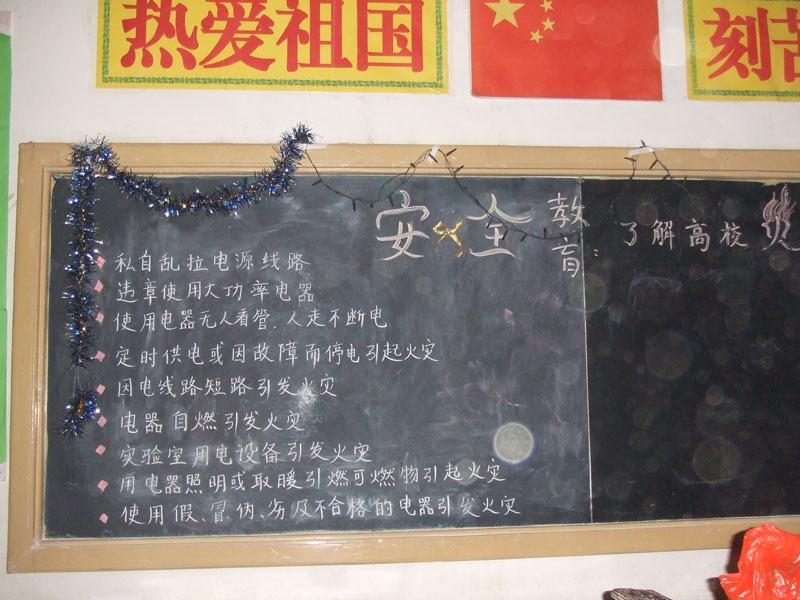 热爱祖国
刻苦
安全教育:
了解高校
私自乱拉电源线路
违章使用大功率电器
使用电器无人看管,人走不断电
定时供电或因故障而停电引起火灾
因电线路短路引发火灾
电器自燃引发火灾
实验室用电设备引发火灾
用电器照明或取暖引燃可燃物引起火灾
使用假、冒、伪、劣及不合格的电器引发火灾